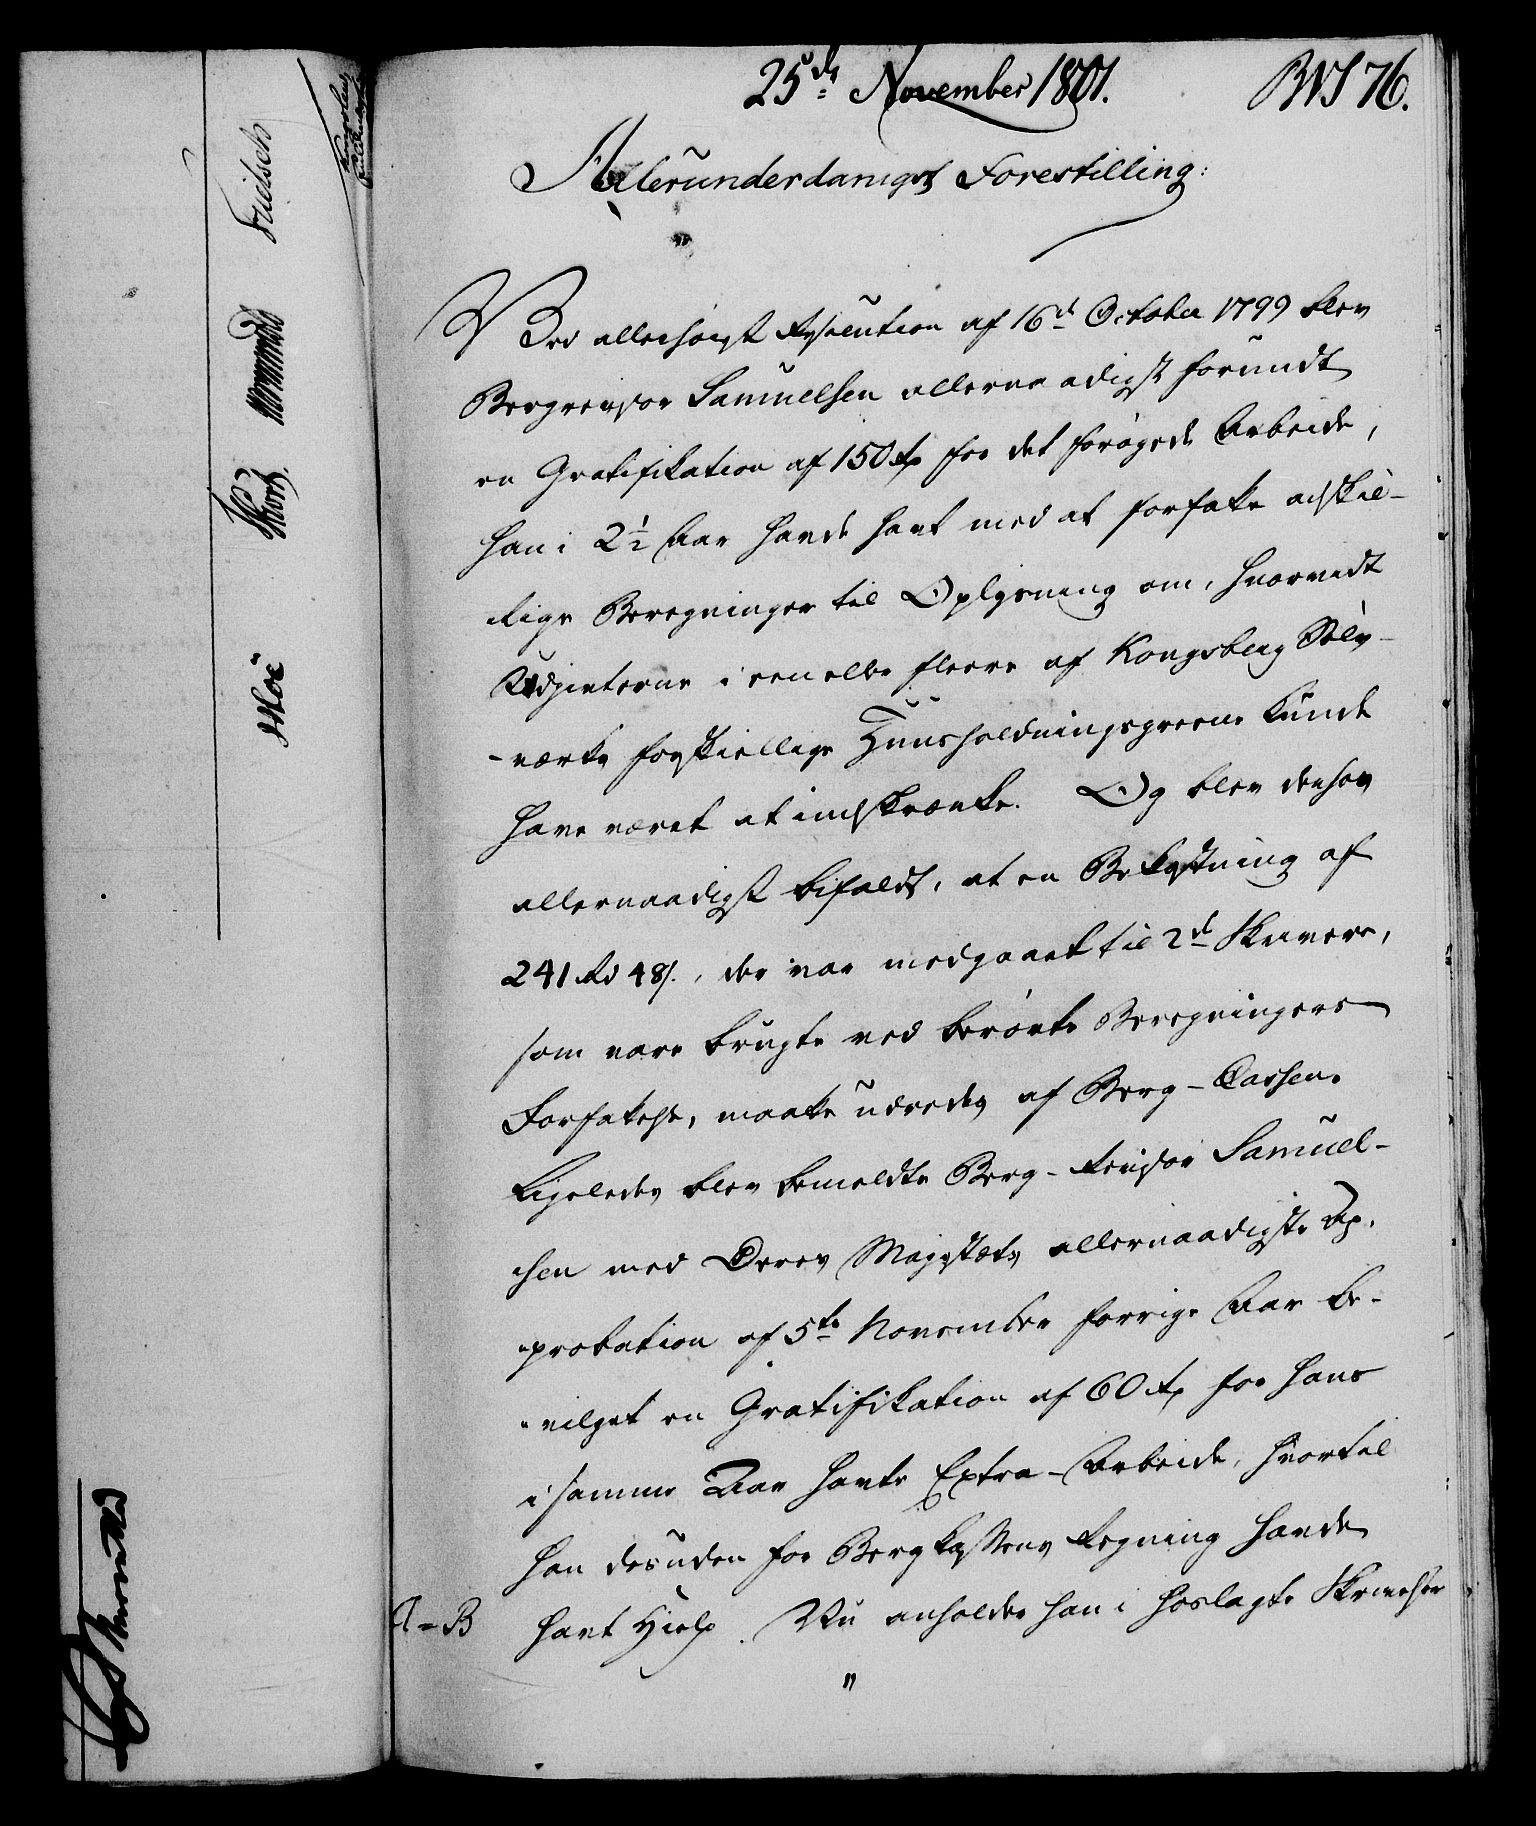 25de November 1801.
BVS 76.
Allerunderdanigst Forestilling:
Ved allerhøigst Resolution af 16de October 1799 blev
Bergrevisor Samuelsen allernaadigst forundt
en Gratifikation af 150 rd for det forøgede Arbeide,
han i 2½ Aar havde havt med at forfatte adskil-
lige Beregninger til Oplysning om, hvorvidt
Udgivterne i een eller fleere af Kongsberg Sølv-
-værks forskiellige Huusholdningsgreene kunde
have været at indskrænke. Og blev derhos
allernaadigst bifaldt, at en Bekostning af
241 Rd 48 s., der var medgaaet til 2de Skrivere,
som vare brugte ved berørte Beregningers
Forfattelse, maatte udredes af Berg-Cassen.
Ligeledes blev bemeldte Berg-Revisor Samuel-
sen med Deres Majestæts allernaadigste Ap-
probation af 5te November forrige Aar be-
vilget en Gratifikation af 60 rd for hans
i samme Aar havte Extra-Arbeide, hvortil
han desuden for Bergkassens Regning havde
A=B havt Hielp. Nu anholder han i hoslagte Skrivelser
"
Moë